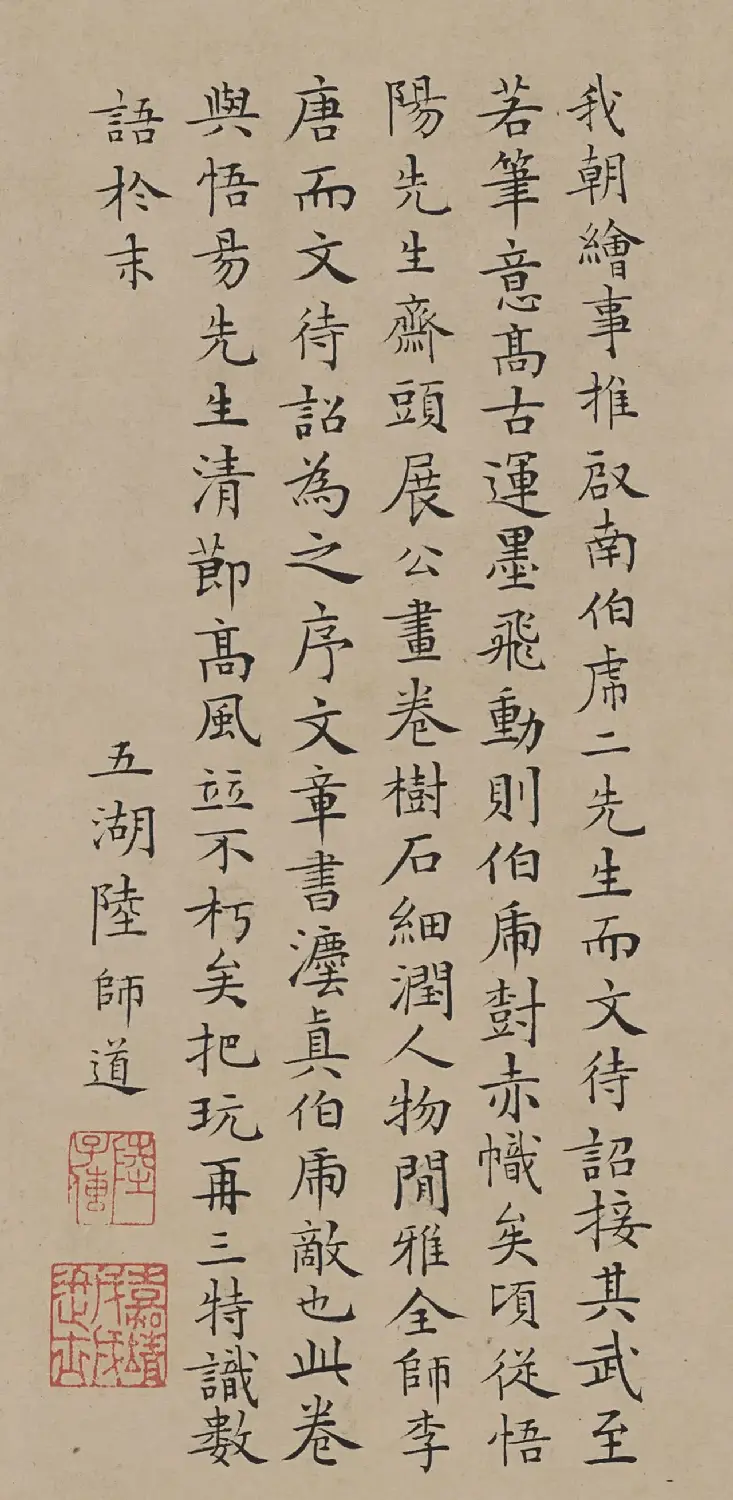 我朝繪事推啟南伯虎二先生而文待詔接其武至
若筆意髙古運墨飛動則伯虎對赤幟矣頃從悟
陽先生齋頭展公畫卷樹石細潤人物閒雅全師李
唐而文待詔為之序文章書灋真伯虎敵也此卷
與悟昜先生清節髙風竝不朽矣把玩再三特識數
語於末
五湖陸師道
陸子傳
嘉靖戊戌進士